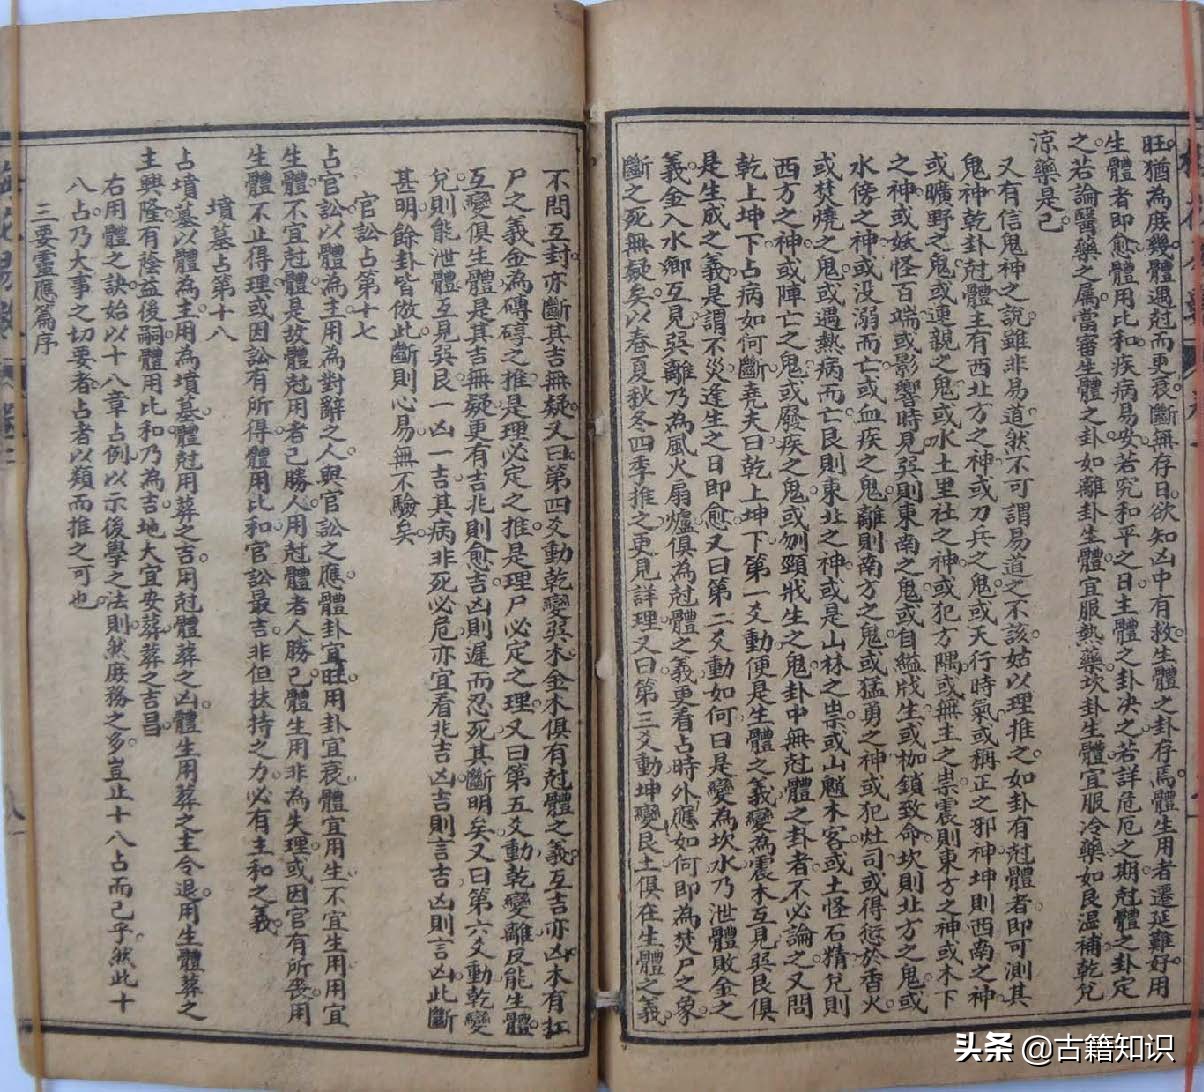 旺。猶為庶幾。體遇尅而更衰。斷無存日。欲知凶中有救。生體之卦存焉。體生用者遷延難好。用
生體者即愈。體用比和。疾病易安。若究和平之日。主體之卦决之。若詳危厄之期。尅體之卦定
之。若論醫藥之屬。當審生體之卦。如離卦生體。宜服熱藥。坎卦生體。宜服冷藥。如艮溫補。乾兌
涼藥是已。
又有信鬼神之說。雖非易道。然不可謂易道之不該。姑以理推之。如卦有尅體者。即可測其
鬼神。乾卦尅體。主有西北方之神。或刀兵之鬼。或天行時氣。或稱正之邪神。坤則西南之神
或曠野之鬼。或連親之鬼。或水土里社之神。或犯方隅。或無主之祟。震則東方之神。或木下
之神。或妖怪百端。或影響時見。巽則東南之鬼。或自縊戕生。或枷鎖致命。坎則北方之鬼。或
水傍之神。或没溺而亡。或血疾之鬼。離則南方之鬼。或猛勇之神。或犯灶司。或得愆於香火
或焚燒之鬼。或遇熱病而亡。艮則東北之神。或是山林之祟。或山魈木客。或土怪石精。兌則
西方之神。或陣亡之鬼。或廢疾之鬼。或刎頸戕生之鬼。卦中無尅體之卦者。不必論之。又問
乾上坤下占病如何斷。堯夫曰。乾上坤下。第一爻動。便是生體之義。變為震木。互見巽艮。俱
是生成之義。是謂不災。逢生之日即愈。又曰。第二爻動如何。曰。是變為坎水。乃泄體敗金之
義。金入水鄉。互見巽離。乃為風火扇爐。俱為尅體之義。更看占時外應如何。即為焚尸之象
斷之死無疑矣。以春夏秋冬四季推之。更見詳理。又曰。第三爻動。坤變艮土。俱在生體之義。
不問互卦。亦斷其吉無疑。又曰。第四爻動。乾變巽木。金木俱有尅體之義。互吉亦凶。木有扛
尸之義。金為磚碍之推。是理必定之推。是理尸必定之理。又曰。第五爻動。乾變離。反能生體
互變俱生體。是其吉無疑。更有吉兆則愈吉。凶則遲而忍死。其斷明矣。又曰。第六爻動。乾變
兌。則能泄體。互見巽艮。一凶一吉。其病非死必危。亦宜看兆吉凶。吉則言吉。凶則言凶。此斷
甚明。餘卦皆倣此斷。則心易無不驗矣。
官訟占第十七
占官訟。以體為主。用為對辭之人。與官訟之應。體卦宜旺。用卦宜衰。體宜用生。不宜生用。用宜
生體。不宜尅體。是故體尅用者。己勝人。用尅體者。人勝己。體生用。非為失理。或因官有所喪。用
生體。不止得理。或因訟有所得。體用比和。官訟最吉。非但扶持之力。必有主和之義。
墳墓占第十八
占墳墓。以體為主。用為墳墓。體尅用。葬之吉。用尅體。葬之凶。體生用。葬之主令退。用生體。葬之
主興隆。有蔭益後嗣。體用比和。乃為吉地。大宜安葬。葬之吉昌
右用體之訣。始以十八章占例。以示後學之法則。然庶務之多。豈止十八占而已乎。然此十
八占。乃大事之切要者。占者以類而推之可也
三要靈應篇序
头条 @古籍知识